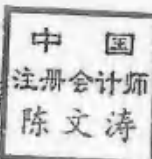 中国
注册会计师
陈文涛